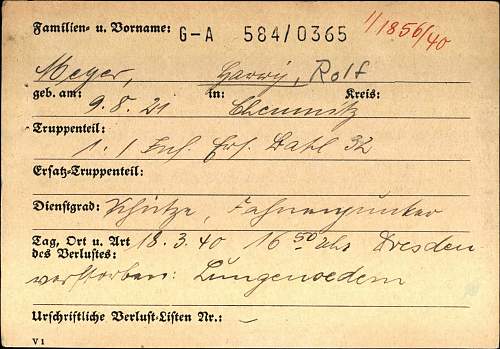 Familien- u. Vorname: G-A 584/0365 1/1856/40
Meyer, Harry, Rolf
geb. am: 9.8.21 in: Chemnitz Kreis:
Truppenteil: 1. / Inf. Ers. Batl 32
Ersatz-Truppenteil:
Dienstgrad: Schütze, Fahnenjunker
Tag, Ort u. Art 18.3.40 16 50 Uhr Dresden
des Verlustes:
verstorben: Lungenoedem
Urschriftliche Verlust-Listen Nr.: –
V 1